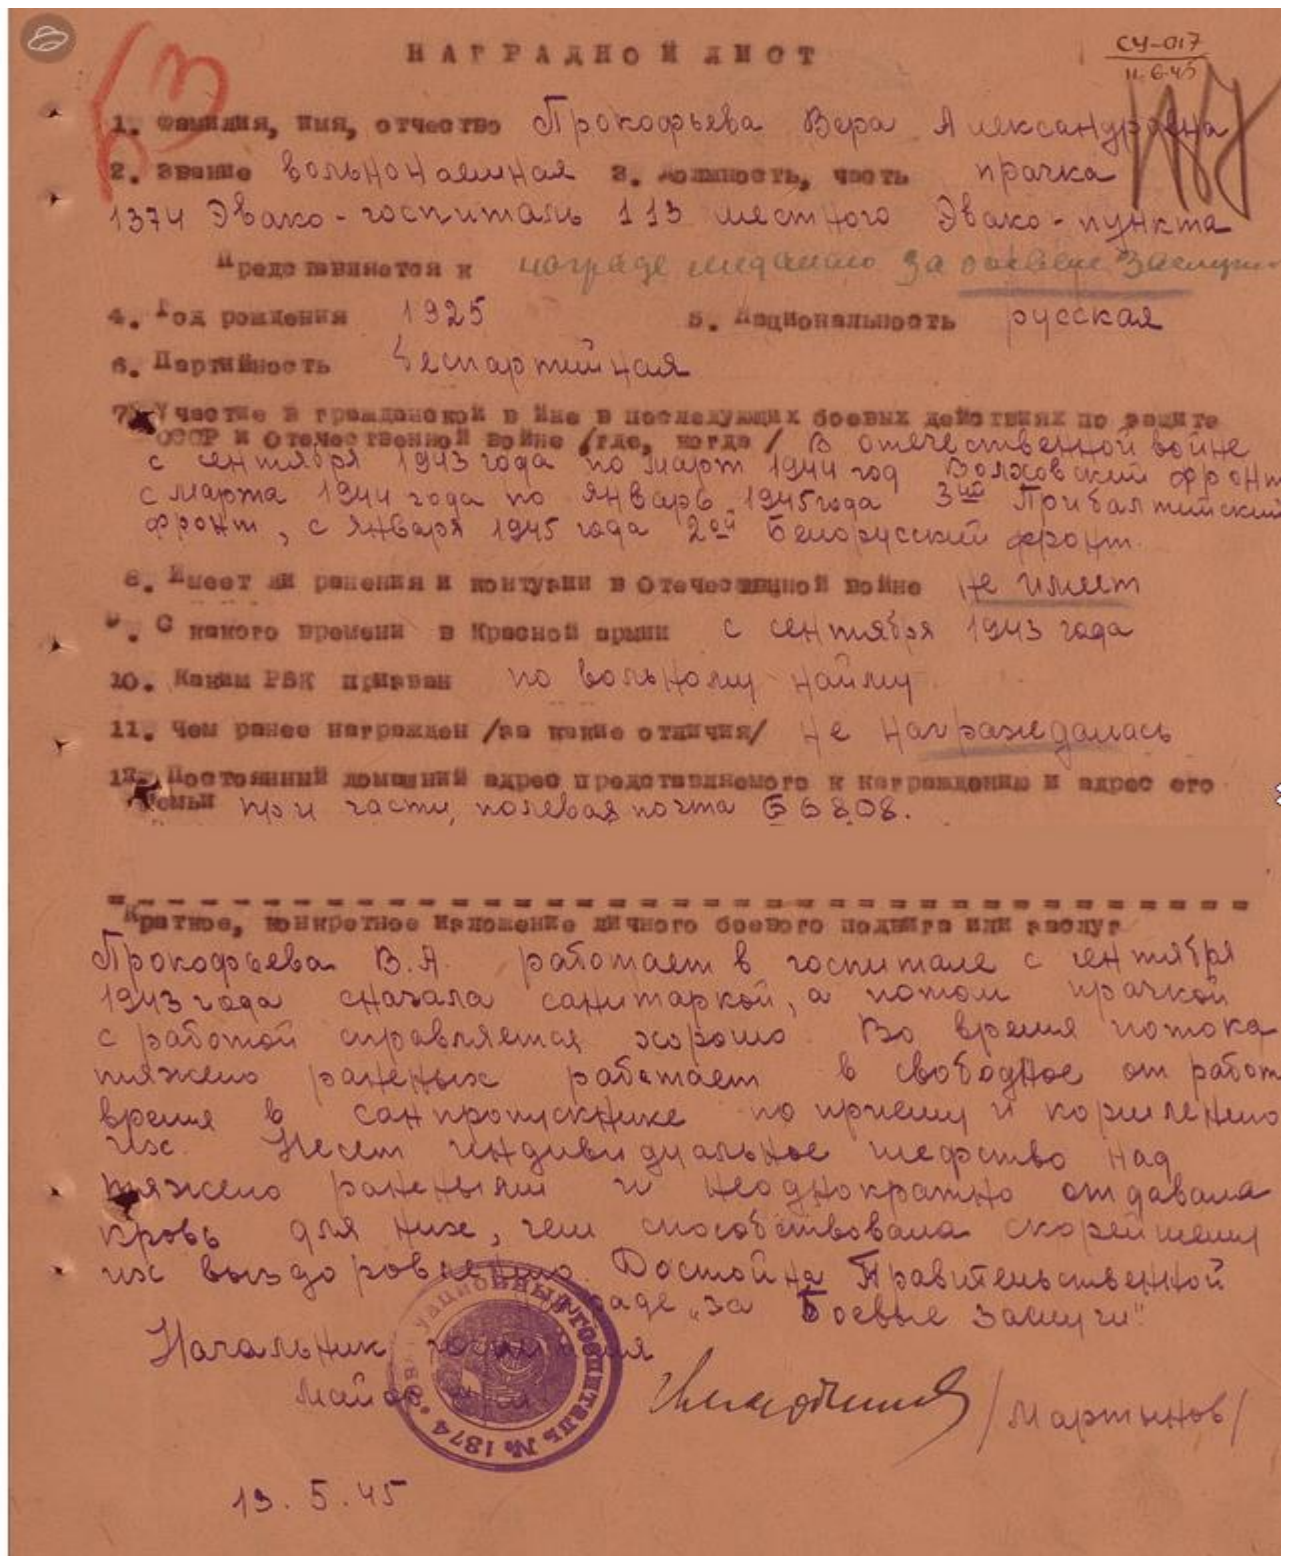 НАГРАДНОЙ ЛИСТ
СЧ-017
11.6.45
1. Фамилия, имя, отчество Прокофьева Вера Александровна
2. Звание вольнонаемная 3. Должность, часть прачка
1374 Эвако-госпиталь 113 местного Эвако-пункта
Представляется к награде медалью За боевые заслуги
4. Год рождения 1925 5. Национальность русская
6. Партийность беспартийная
7. Участие в гражданской войне в последующих боевых действиях по защите
СССР и Отечественной войне /где, когда/ В отечественной войне
с сентября 1943 года по март 1944 год Волховский фронт
с марта 1944 года по январь 1945 года 3ий Прибалтийский
фронт, с января 1945 года 2ой Белорусский фронт.
8. Имеет ли ранения и контузии в Отечественной войне не имеет
9. С какого времени в Красной армии с сентября 1943 года
10. Каким РВК призван по вольному найму
11. Чем ранее награжден /за какие отличия/ не награждалась
12. Постоянный домашний адрес представляемого к награждению и адрес его
семьи при части, полевая почта 66808.
Краткое, конкретное изложение личного боевого подвига или заслуг
Прокофьева В.А. работает в госпитале с сентября
1943 года сначала санитаркой, а потом прачкой
с работой справляется хорошо. Во время потока
тяжело раненых работает в свободное от работ
время в санпропускнике по приему и кормлению
их. Несет индивидуальное шефство над
тяжело ранеными и неоднократно отдавала
кровь для них, чем способствовала скорейшему
их выздоровлению. Достойна Правительственной
награде „за Боевые заслуги"
Начальник госпиталя
Майор
/Мартынов/
ГОСПИТАЛЬ № 1374
13.5.45